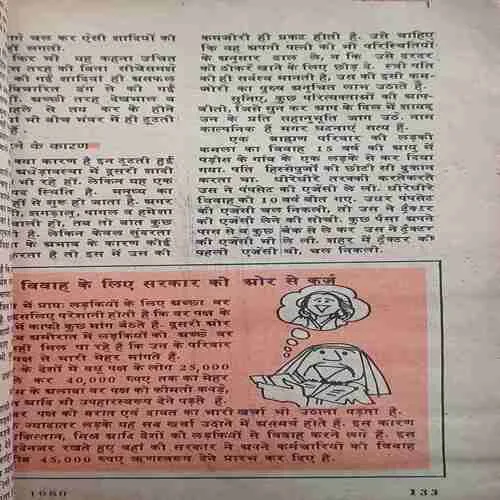 चल कर ऐसी शादियों को
लगती.
फिर भी यह कहना उचित
तरह की बिना सोचेसमझे
की गई शादियां ही असफल
विचारित ढंग से की गई
अच्छी तरह देखभाल व
पहले से तय कर के होते
भी बीच भंवर में ही टूटती
के कारण
क्या कारण है इन टूटती हुई
अधेड़ावस्था में दूसरी शादी
भी रहे हों. लेकिन यह एक
स्थिति है. मनुष्य का
से शुरू हो जाता है. अगर
झगड़ालू, पागल व हमेशा
वाली हो, तब तो बात कुछ
है. लेकिन केवल सुंदरता
के अभाव के कारण कोई
करता है तो इस में उस की
कमजोरी ही प्रकट होती है. उसे चाहिए
कि वह अपनी पत्नी को भी परिस्थितियों
के अनुसार ढाल ले, न कि उसे दरदर
की ठोकरें खाने के लिए छोड़ दे. स्त्री पति
को ही सर्वस्व मानती है, उस की इसी कम-
जोरी का पुरुष अनुचित लाभ उठाते हैं.
सुनिए, कुछ परित्यक्ताओं की आप-
बीती, जिसे सुन कर आप के दिल में शायद
उन के प्रति सहानुभूति जाग उठे. नाम
काल्पनिक हैं मगर घटनाएं सत्य हैं.
एक ब्राह्मण परिवार की लड़की
कमला का विवाह 15 वर्ष की आयु में
पड़ोस के गांव के एक लड़के से कर दिया
गया. पति हिस्सेपुर्जों की छोटी सी दुकान
करता था. धीरेधीरे तरक्की करतेकरते
उस ने पंपसेट की एजेंसी ले ली. धीरेधीरे
विवाह को 10 वर्ष बीत गए. उधर पंपसेट
की एजेंसी चल निकली, तो उस ने ट्रैक्टर
की एजेंसी लेने की सोची. कुछ पैसा अपने
पास से व कुछ बैंक से ले कर उस ने ट्रैक्टर
की एजेंसी भी ले ली. शहर में ट्रैक्टर की
पहली एजेंसी थी, चल निकली.
विवाह के लिए सरकार की ओर से कर्ज
में प्रायः लड़कियों के लिए अच्छा वर
इसलिए परेशानी होती है कि वर पक्ष के
में काफी कुछ मांग बैठते हैं. दूसरी ओर
अमीरात में लड़कियों को अच्छे वर
नहीं मिल पा रहे हैं कि उन के परिवार
पक्ष से भारी मेहर मांगते हैं.
के देशों में वधू पक्ष के लोग 25,000
ले कर 40,000 रुपए तक का मेहर
के अलावा वर पक्ष को कीमती कपड़े,
आदि भी उपहारस्वरूप देने पड़ते हैं.
वर पक्ष को बरात एवं दावत का भारी खर्चा भी उठाना पड़ता है.
ज्यादातर लड़के यह सब खर्चा उठाने में असमर्थ होते हैं. इस कारण
पाकिस्तान, मिस्र आदि देशों की लड़कियों से विवाह करने लगे हैं. इस
मद्देनजर रखते हुए वहां की सरकार ने अपने कर्मचारियों को विवाह
45,000 रुपए ऋणस्वरूप देने प्रारंभ कर दिए हैं.
1980
133